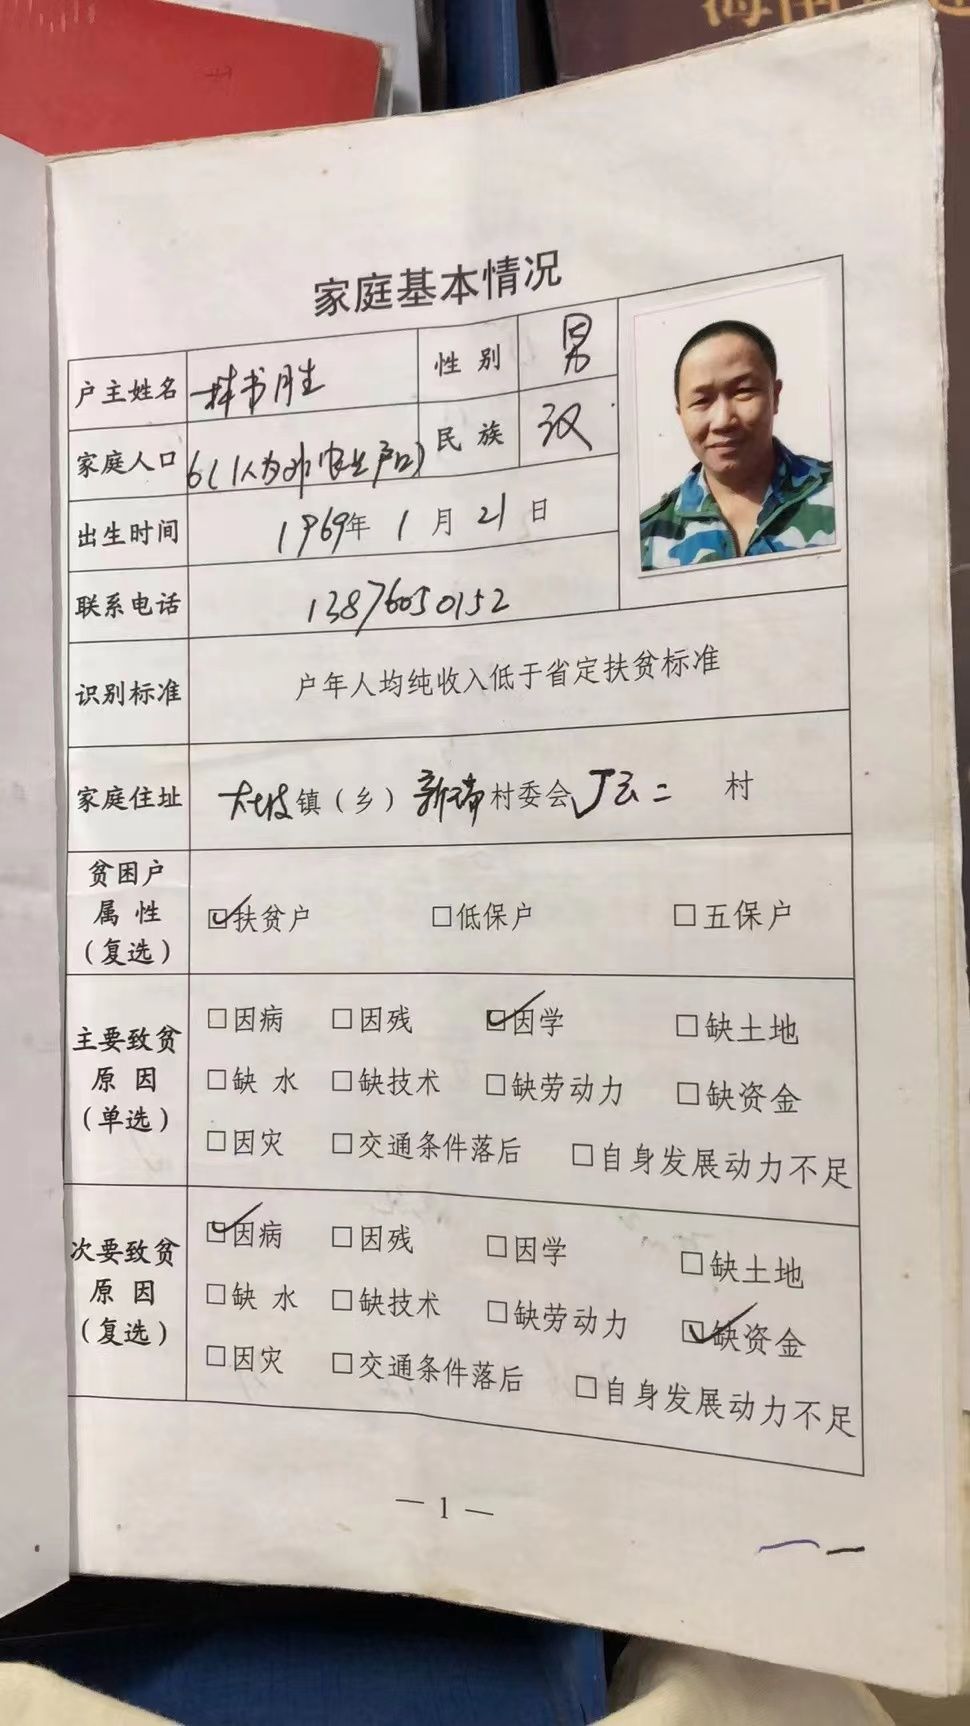 海南
家庭基本情况
户主姓名 林书胜 性别 男
家庭人口 6(1人为非农业户口) 民族 汉
出生时间 1969年 1月 21日
联系电话 13876050152
识别标准 户年人均纯收入低于省定扶贫标准
家庭住址 大坡镇(乡)新瑞村委会 二 村
贫困户
属性
(复选)
☑扶贫户 □低保户 □五保户
主要致贫
原因
(单选)
□因病 □因残 ☑因学 □缺土地
□缺水 □缺技术 □缺劳动力 □缺资金
□因灾 □交通条件落后 □自身发展动力不足
次要致贫
原因
(复选)
☑因病 □因残 □因学 □缺土地
□缺水 □缺技术 □缺劳动力 ☑缺资金
□因灾 □交通条件落后 □自身发展动力不足
— 1 —